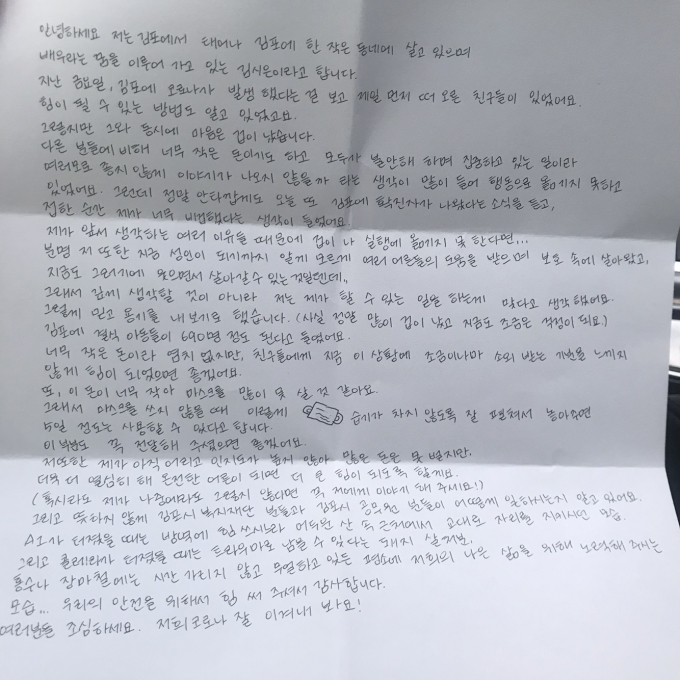 안녕하세요 저는 김포에서 태어나 김포에 한 작은 동네에 살고 있으며
배우라는 꿈을 이루어 가고 있는 김시은이라고 합니다.
지난 금요일, 김포에 코로나가 발생 했다는 걸 보고 제일 먼저 떠 오른 친구들이 있었어요.
힘이 될 수 있는 방법도 알고 있었고요.
그렇지만 그와 동시에 마음은 겁이 났습니다.
다른 분들에 비해 너무 작은 돈이기도 하고 모두가 불안해 하며 집중하고 있는 일이라
여러모로 좋지 않게 이야기가 나오지 않을까 라는 생각이 많이 들어 행동으로 옮기지 못하고
있었어요. 그런데 정말 안타깝게도 오늘 또 김포에 확진자가 나왔다는 소식을 듣고,
접한 순간 제가 너무 비겁했다는 생각이 들었어요.
제가 앞서 생각하는 여러 이유들 때문에 겁이 나 실행에 옮기지 못 한다면...
분명 저 또한 지금 성인이 되기까지 알게 모르게 여러 어른들의 도움을 받으며 보호 속에 살아왔고,
지금도 그러기에 웃으면서 살아갈 수 있는 것일텐데..
그래서 깊게 생각할 것이 아니라 저는 제가 할 수 있는 일을 하는게 맞다고 생각했어요.
그렇게 믿고 용기를 내 보기로 했습니다. (사실 정말 많이 겁이 났고 지금도 조금은 걱정이 되요.)
김포에 결식 아동들이 690명 정도 된다고 들었어요.
너무 작은 돈이라 염치 없지만, 친구들에게 지금 이 상황에 조금이나마 소외 받는 기분을 느끼지
않게 힘이 되었으면 좋겠어요.
또, 이 돈이 너무 작아 마스크를 많이 못 살 것 같아요.
그래서 마스크를 쓰지 않을 때 이렇게 습기가 차지 않도록 잘 펴서 놓아주면
5일 정도는 사용할 수 있다고 합니다.
이 부분도 꼭 전달해 주셨으면 좋겠어요.
저 또한 제가 아직 어리고 인지도가 높지 않아 많은 돈은 못 벌지만,
더욱 더 열심히 해 온전한 어른이 되면 더 큰 힘이 되도록 할게요.
(혹시라도 제가 나중에라도 그렇지 않다면 꼭 저에게 이야기 해 주세요!!)
그리고 뜻하지 않게 김포시 복지재단 분들과 김포시 공무원 분들이 어떻게 일하시는지 알고 있어요.
AI가 터졌을 때는 방역에 힘 쓰시느라 어두운 산 둑 근처에서 교대로 자리를 지키시던 모습.
그리고 콜레라가 터졌을 때는 트라우마로 남을 수 있다는 돼지 살처분,
홍수나 장마철에는 시간 가리지 않고 무얼하고 있든 평소에 저희의 나은 삶을 위해 노력해 주시는
모습... 우리의 안전을 위해서 힘 써 주셔서 감사합니다.
여러분들 조심하세요. 저희 코로나 잘 이겨내 봐요!